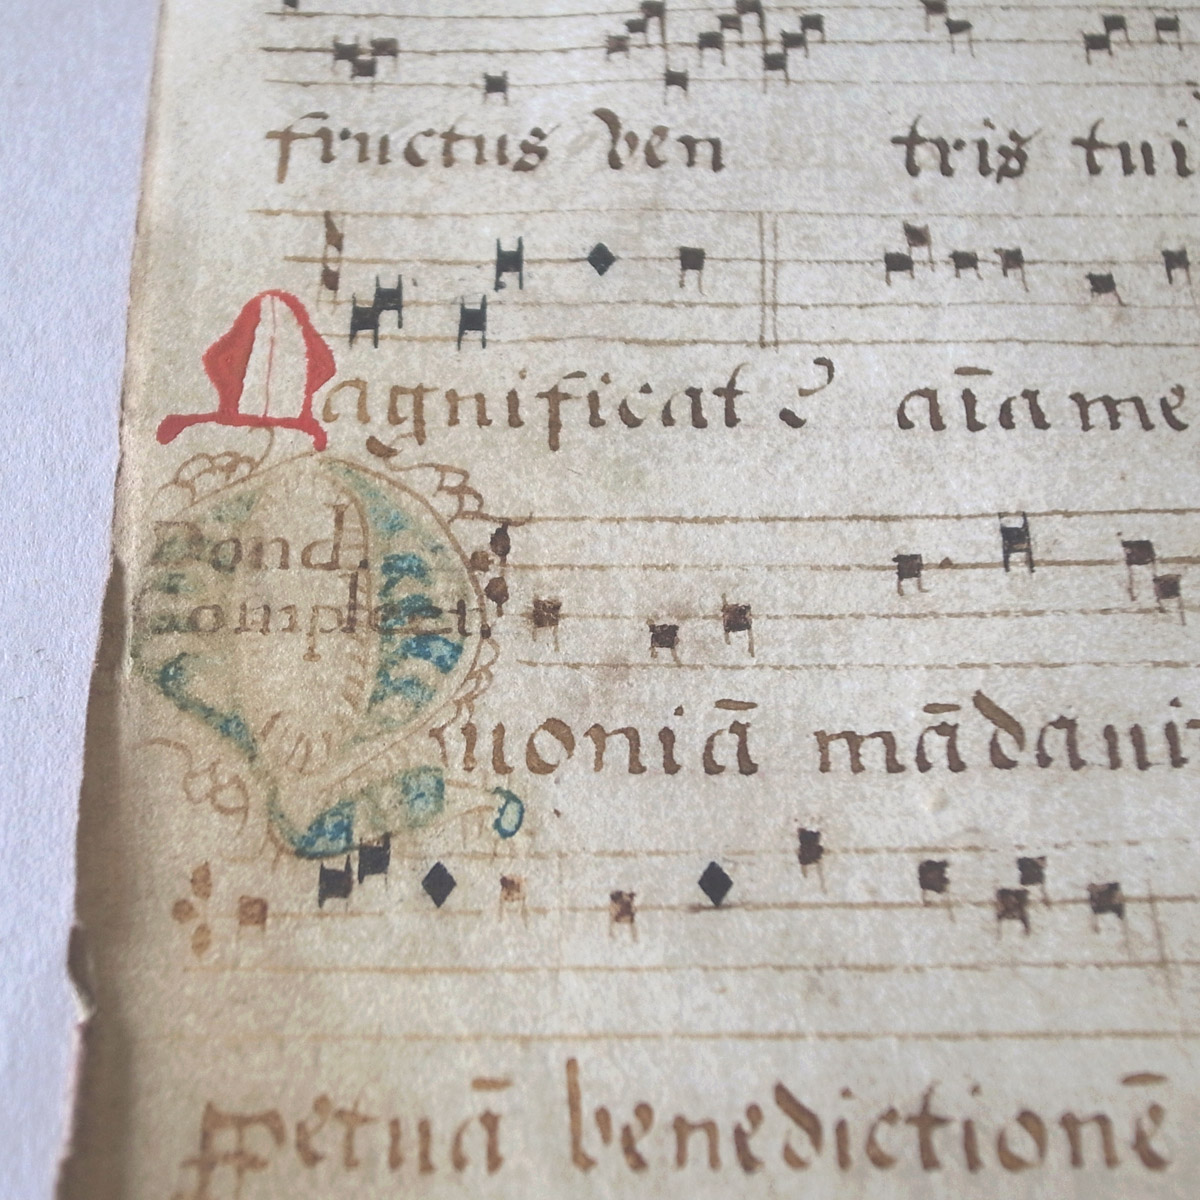 fructus ven tris tui
Magnificat aīa me
Dond.
complect.
Quoniā mādavit
ꝑpetuā benedictionē